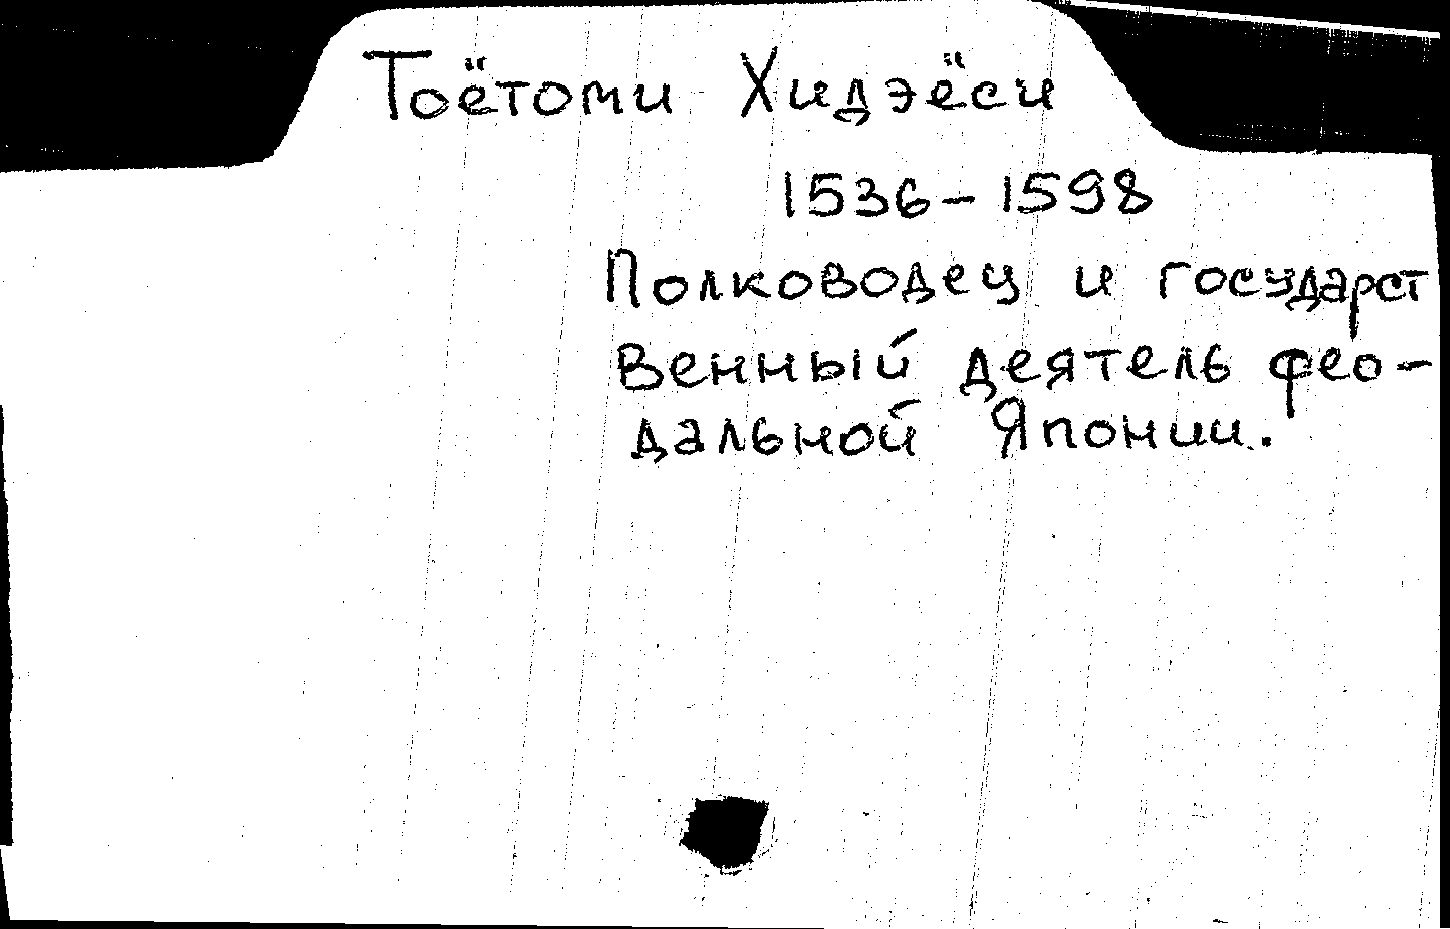 Тоётоми Хидэёси
1536-1598
Полководец и государст
венный деятель фео-
дальной Японии.